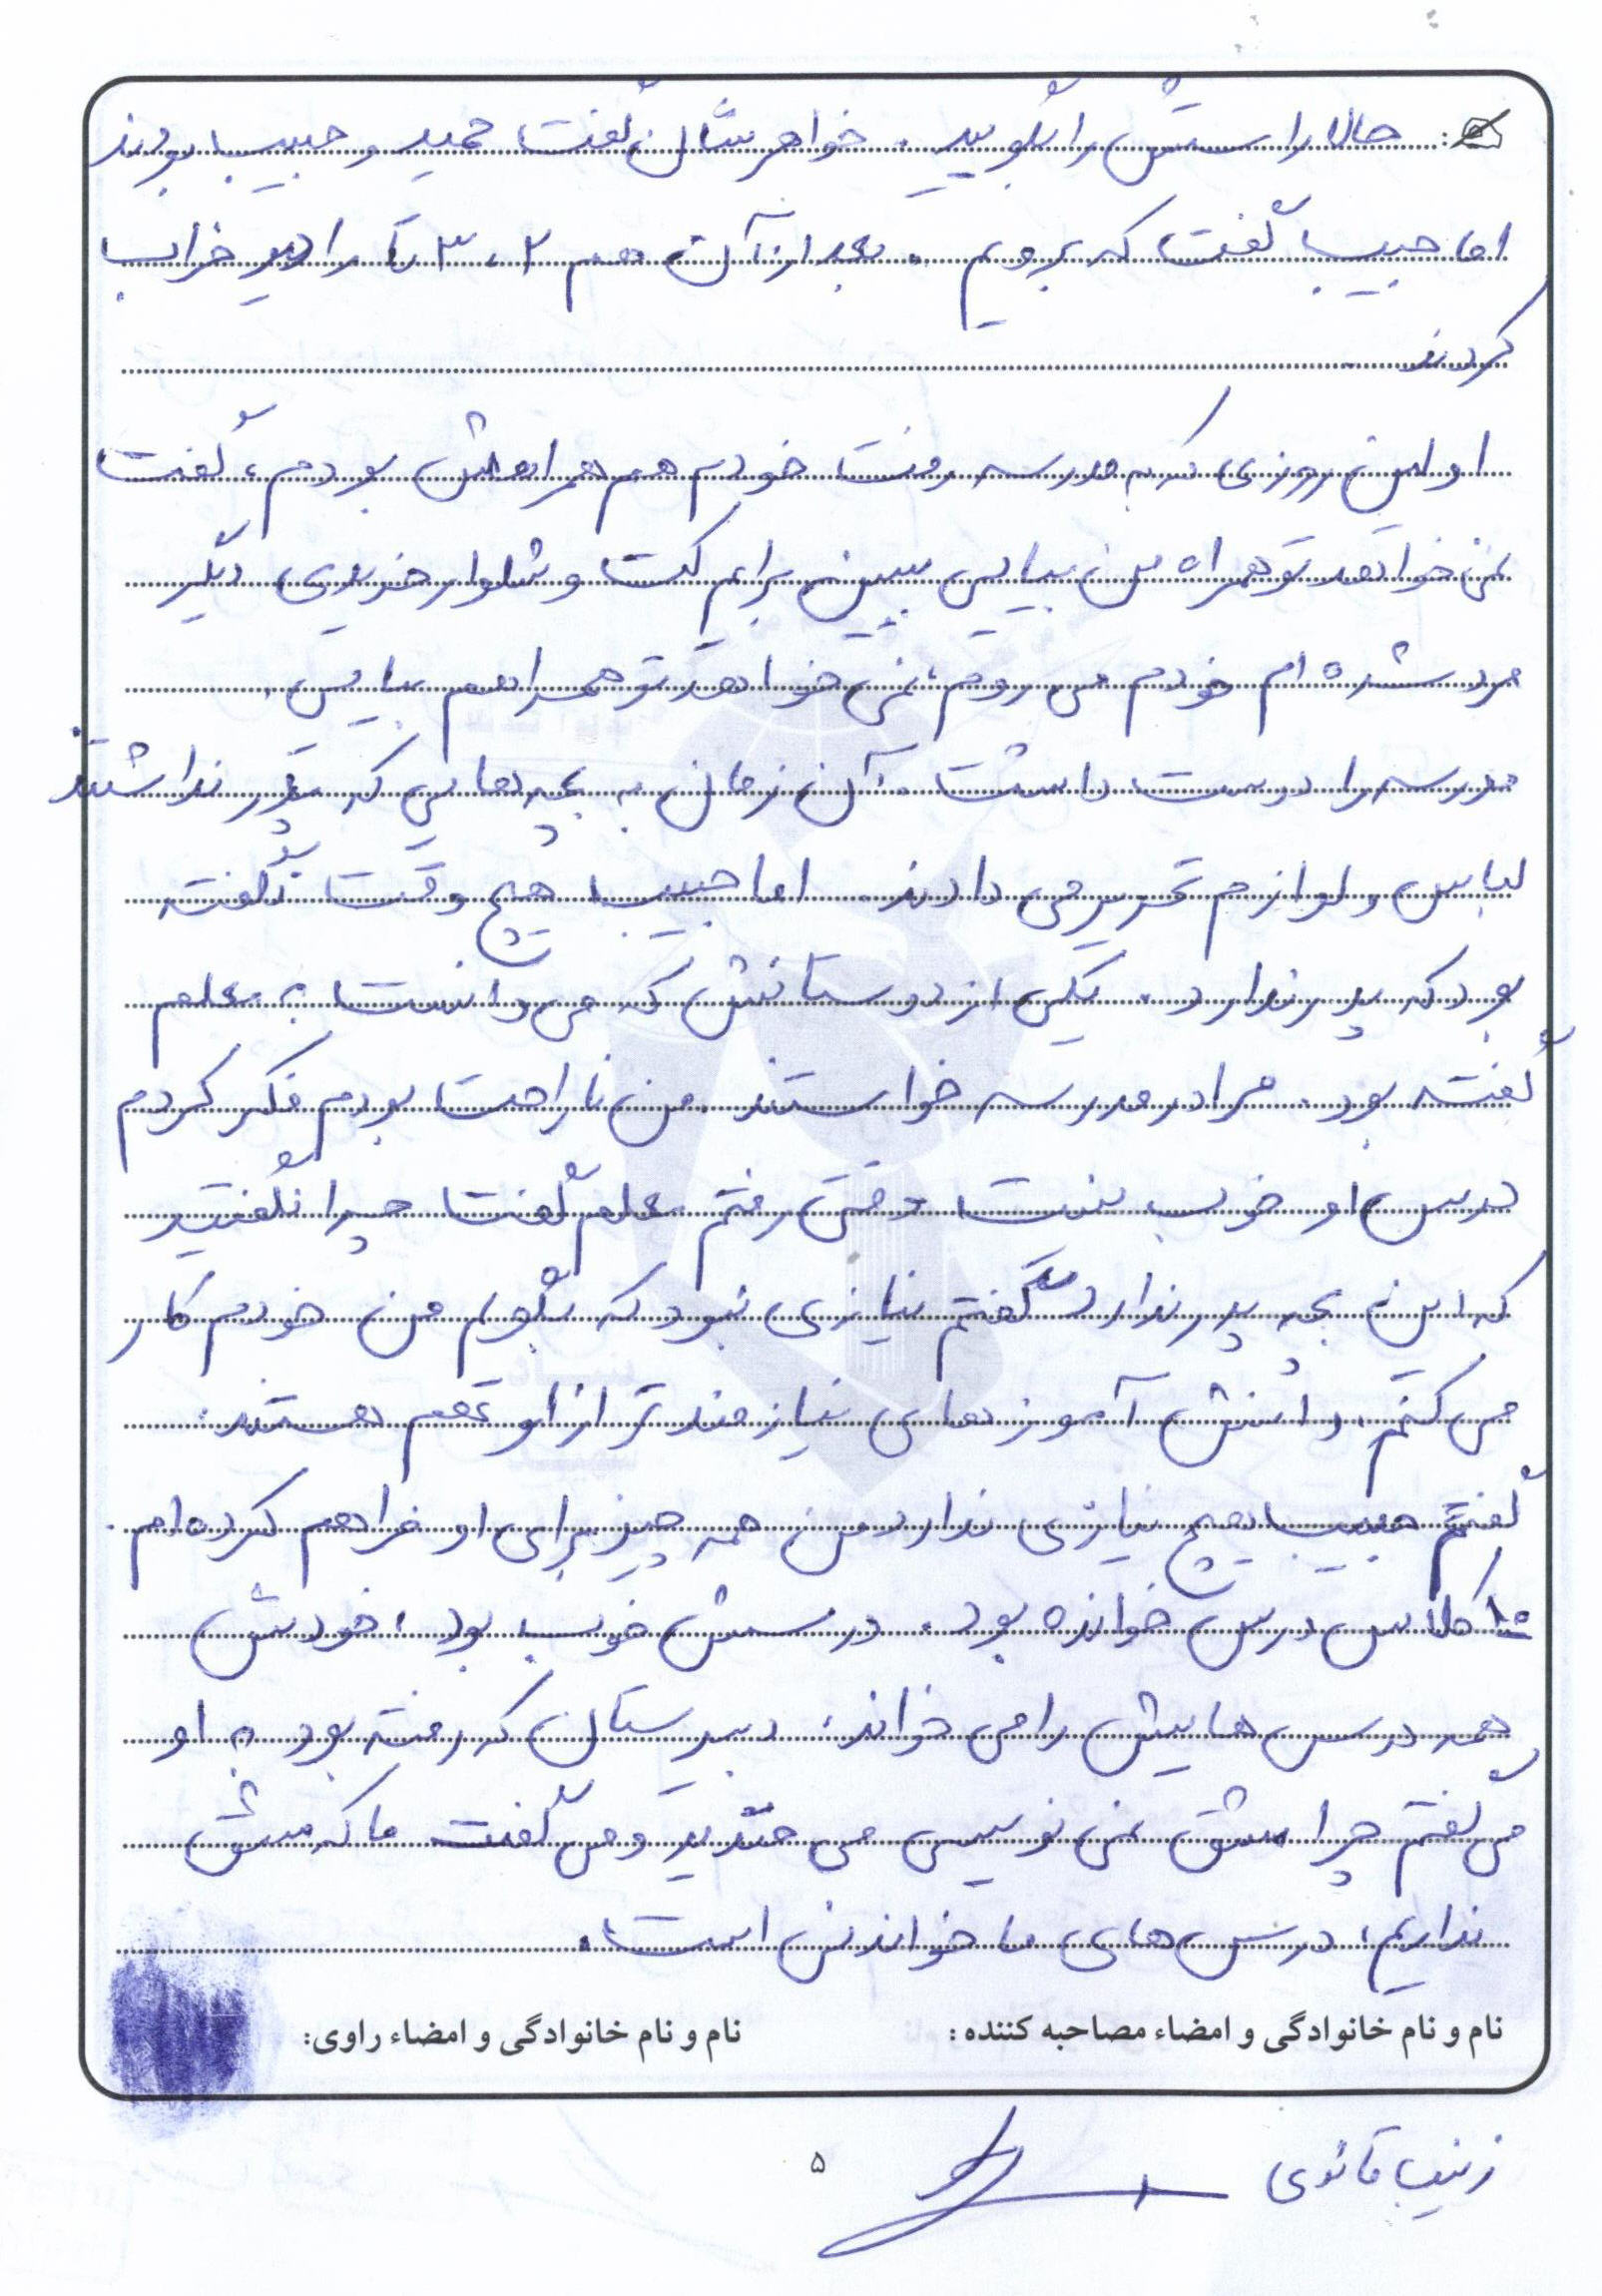 حالا راستش را بگویید. خواهرشان گفت حمید و حبیب بودند
اما حبیب گفت که برویم. بعد از آن هم ۲، ۳ تا رادیو خراب
کردند.
اولین روزی که به مدرسه رفت خودم هم همراهش بودم، گفت
نمی خواهد تو همراه من بیایی ببین برایم کت و شلوار خریدی دیگر
مرد شده ام خودم می روم، نمی خواهد تو همراهم بیایی.
مدرسه را دوست داشت. آن زمان به بچه هایی که پدر نداشتند
لباس و لوازم تحریر می دادند. اما حبیب هیچ وقت نگفته
بود که پدر ندارد. یکی از دوستانش که می دانست به معلم
گفته بود. مرا در مدرسه خواستند. من ناراحت بودم فکر کردم
درس او خوب نیست وقتی رفتم معلم گفت چرا نگفتید
که این بچه پدر ندارد گفتم نیازی نبود که بگویم من خودم کار
می کنم، دانش آموزهای نیازمند تر از او هم هستند.
گفتم حبیب هیچ نیازی ندارد من همه چیز برای او فراهم کرده ام.
۱۰ کلاس درس خوانده بود. درسش خوب بود، خودش
همه درس هایش را می خواند. دبیرستان که رفته بود به او
می گفتم چرا مشق نمی نویسی می خندید و می گفت ما که مشق
نداریم، درس های ما خواندنی است.
نام و نام خانوادگی و امضاء مصاحبه کننده: نام و نام خانوادگی و امضاء راوی:
زینب قانوی
۵